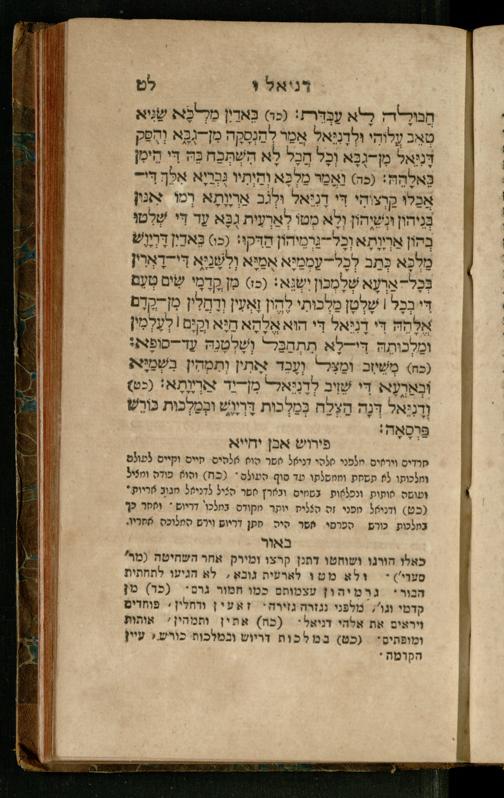 דניאל ו לט
חֲבוּלָה לָא עַבְדֵּת: (כד) בֵּאדַיִן מַלְכָּא שַׂגִּיא
טְאֵב עֲלוֹהִי וּלְדָנִיֵּאל אֲמַר לְהַנְסָקָה מִן־גֻּבָּא וְהֻסַּק
דָּנִיֵּאל מִן־גֻּבָּא וְכָל חֲבָל לָא הִשְׁתְּכַח בֵּהּ דִּי הֵימִן
בֵּאלָהֵהּ: (כה) וַאֲמַר מַלְכָּא וְהַיְתִיו גֻּבְרַיָּא אִלֵּךְ דִּי־
אֲכַלוּ קַרְצוֹהִי דִּי דָנִיֵּאל וּלְגֹב אַרְיָוָתָא רְמוֹ אִנּוּן
בְּנֵיהוֹן וּנְשֵׁיהוֹן וְלָא מְטוֹ לְאַרְעִית גֻּבָּא עַד דִּי שְׁלִטוּ
בְהוֹן אַרְיָוָתָא וְכָל־גַּרְמֵיהוֹן הַדִּקוּ: (כו) בֵּאדַיִן דָּרְיָוֶשׁ
מַלְכָּא כְּתַב לְכָל־עַמְמַיָּא אֻמַּיָּא וְלִשָּׁנַיָּא דִּי־דָאְרִין
בְּכָל־אַרְעָא שְׁלָמְכוֹן יִשְׂגֵּא: (כז) מִן קֳדָמַי שִׂים טְעֵם
דִּי בְּכָל ׀ שָׁלְטָן מַלְכוּתִי לֶהֱוֹן זָאְעִין וְדָחֲלִין מִן־קֳדָם
אֱלָהֵהּ דִּי דָנִיֵּאל דִּי הוּא אֱלָהָא חַיָּא וְקַיָּם ׀ לְעָלְמִין
וּמַלְכוּתֵהּ דִּי־לָא תִתְחַבַּל וְשָׁלְטָנֵהּ עַד־סוֹפָא:
(כח) מְשֵׁיזִב וּמַצִּל וְעָבֵד אָתִין וְתִמְהִין בִּשְׁמַיָּא
וּבְאַרְעָא דִּי שֵׁזִיב לְדָנִיֵּאל מִן־יַד אַרְיָוָתָא: (כט)
וְדָנִיֵּאל דְּנָה הַצְלַח בְּמַלְכוּת דָּרְיָוֶשׁ וּבְמַלְכוּת כּוֹרֶשׁ
פַּרְסָאָה:
פירוש אבן יחייא
חרדים ויראים מלפני אלהי דניאל אשר הוא אלהים חיים וקיים לעולם
ומלכותו לא תשחת וממשלתו עד סוף העולם · (כח) והוא פודה ומציל
ועושה אותות ונפלאות בשמים ובארץ אשר הציל לדניאל מגוב אריות ·
(כט) ודניאל מפני זה הצליח יותר מקודם במלכו׳ דריוש · ואחר כך
במלכות כורש הפרסי אשר היה חתן דריוש וירש המלוכה אחריו.
באור
כאלו הורגו ושוחטו דתנן קרצו ומירק אחר השחיטה (מר׳
סעדי׳) · ולא מטו לארעית גובא, לא הגיעו לתחתית
הבור · גרמיהון עצמותם כמו חמור גרם · (כד) מן
קדמי וגו׳, מלפני נגזרה גזירה · זאעין ודחלין, פוחדים
ויראים את אלהי דניאל · (כח) אתין ותמהין, אותות
ומופתים · (כט) במלכות דריוש ובמלכות כורש, עיין
הקדמה ·